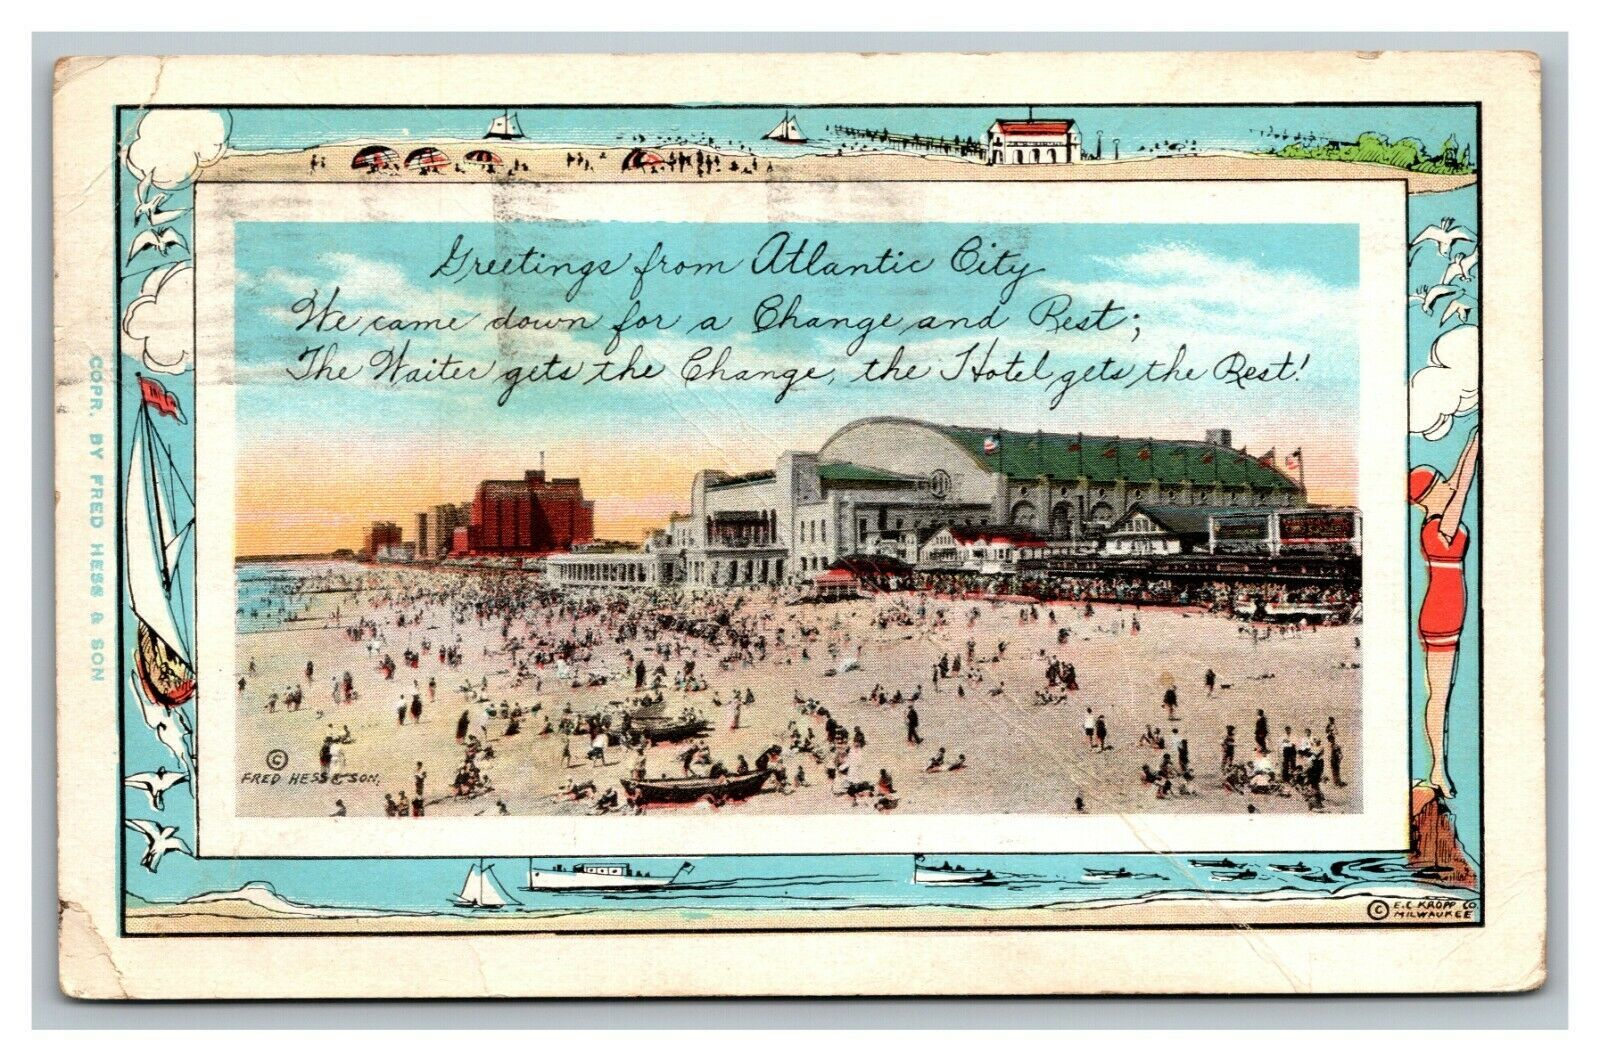 Greetings from Atlantic City
We came down for a Change and Rest;
The Waiter gets the Change, the Hotel gets the Rest!
© FRED HESS & SON.
COPR. BY FRED HESS & SON
© E.C. KROPP CO.
MILWAUKEE